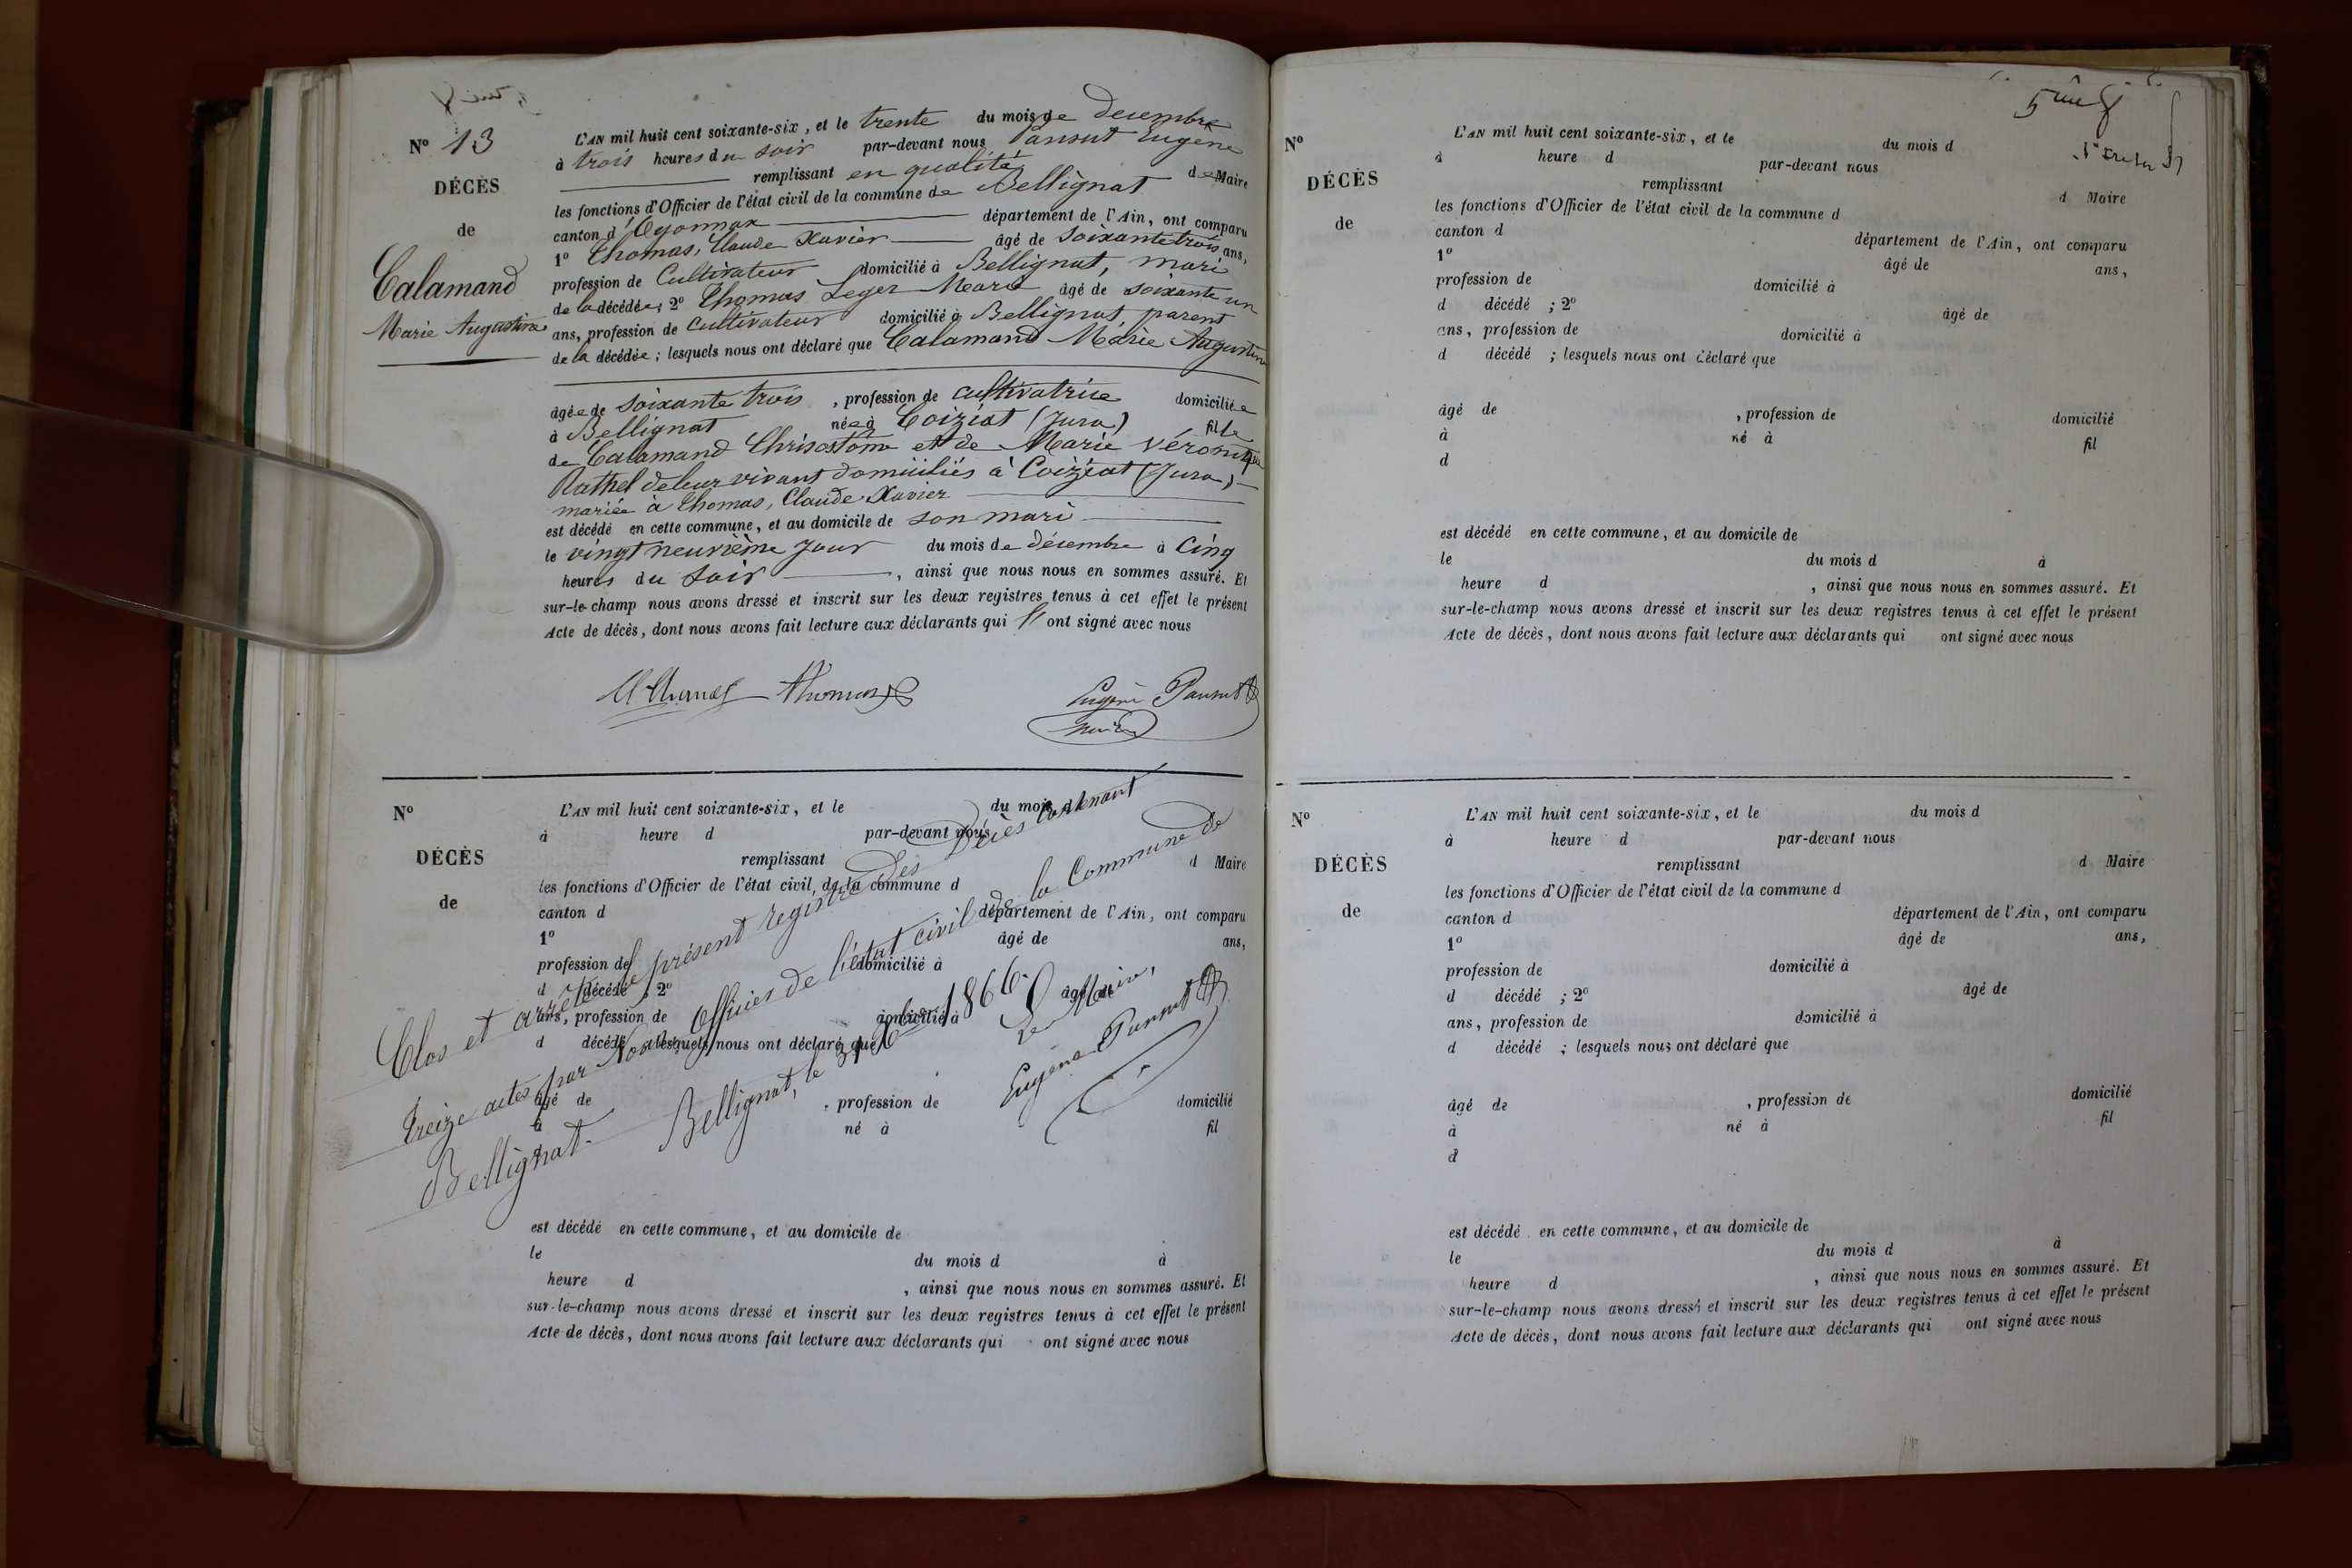 N° 13
DÉCÈS
de
Calamand
Marie Augustine
L'AN mil huit cent soixante-six, et le trente du mois de decembre
à trois heures du soir par-devant nous Pansut Eugène
remplissant en qualité de Maire
les fonctions d'Officier de l'état civil de la commune de Bellignat
canton d'Oyonnax département de l'Ain, ont comparu
1° Thomas, Claude Xavier âgé de soixante trois ans,
profession de Cultivateur domicilié à Bellignat, mari
de la décédée; 2° Thomas Leger Marie âgé de soixante un
ans, profession de cultivateur domicilié à Bellignat, parent
de la décédée; lesquels nous ont déclaré que Calamand Marie Augustine
âgée de soixante trois, profession de cultivatrice domiciliée
à Bellignat née à Coiziat (Jura) fille
de Calamand Chrisostôme et de Marie Véronique
Rathel de leur vivant domiciliés à Coiziat (Jura)
mariée à Thomas, Claude Xavier
est décédé en cette commune, et au domicile de son mari
le vingt neuvième jour du mois de décembre à cinq
heures du soir, ainsi que nous nous en sommes assuré. Et
sur-le-champ nous avons dressé et inscrit sur les deux registres tenus à cet effet le présent
Acte de décès, dont nous avons fait lecture aux déclarants qui ont signé avec nous
Thomas
Eugène Pansut
N°
DÉCÈS
de
L'AN mil huit cent soixante-six, et le du mois d
à heure d par-devant nous
remplissant d Maire
les fonctions d'Officier de l'état civil de la commune d
canton d département de l'Ain, ont comparu
1° âgé de ans,
profession de domicilié à
d décédé ; 2° âgé de
ans, profession de domicilié à
d décédé ; lesquels nous ont déclaré que
âgé de , profession de domicilié
à né à fil
est décédé en cette commune, et au domicile de
le du mois d à
heure d , ainsi que nous nous en sommes assuré. Et
sur-le-champ nous avons dressé et inscrit sur les deux registres tenus à cet effet le présent
Acte de décès, dont nous avons fait lecture aux déclarants qui ont signé avec nous
Clos et arrêté le présent registre des Décès contenant
treize actes par Nous Officier de l'état civil de la Commune de
Bellignat. Bellignat, le 31 Xbre 1866.
Le Maire,
Eugène Pansut
N°
DÉCÈS
de
L'AN mil huit cent soixante-six, et le du mois d
à heure d par-devant nous
remplissant d Maire
les fonctions d'Officier de l'état civil de la commune d
canton d département de l'Ain, ont comparu
1° âgé de ans,
profession de domicilié à
d décédé ; 2° âgé de
ans, profession de domicilié à
d décédé ; lesquels nous ont déclaré que
âgé de , profession de domicilié
à né à fil
d
est décédé en cette commune, et au domicile de
le du mois d à
heure d , ainsi que nous nous en sommes assuré. Et
sur-le-champ nous avons dressé et inscrit sur les deux registres tenus à cet effet le présent
Acte de décès, dont nous avons fait lecture aux déclarants qui ont signé avec nous
N°
DÉCÈS
de
L'AN mil huit cent soixante-six, et le du mois d
à heure d par-devant nous
remplissant d Maire
les fonctions d'Officier de l'état civil de la commune d
canton d département de l'Ain, ont comparu
1° âgé de ans,
profession de domicilié à
d décédé ; 2° âgé de
ans, profession de domicilié à
d décédé ; lesquels nous ont déclaré que
âgé de , profession de domicilié
à né à fil
d
est décédé en cette commune, et au domicile de
le du mois d à
heure d , ainsi que nous nous en sommes assuré. Et
sur-le-champ nous avons dressé et inscrit sur les deux registres tenus à cet effet le présent
Acte de décès, dont nous avons fait lecture aux déclarants qui ont signé avec nous